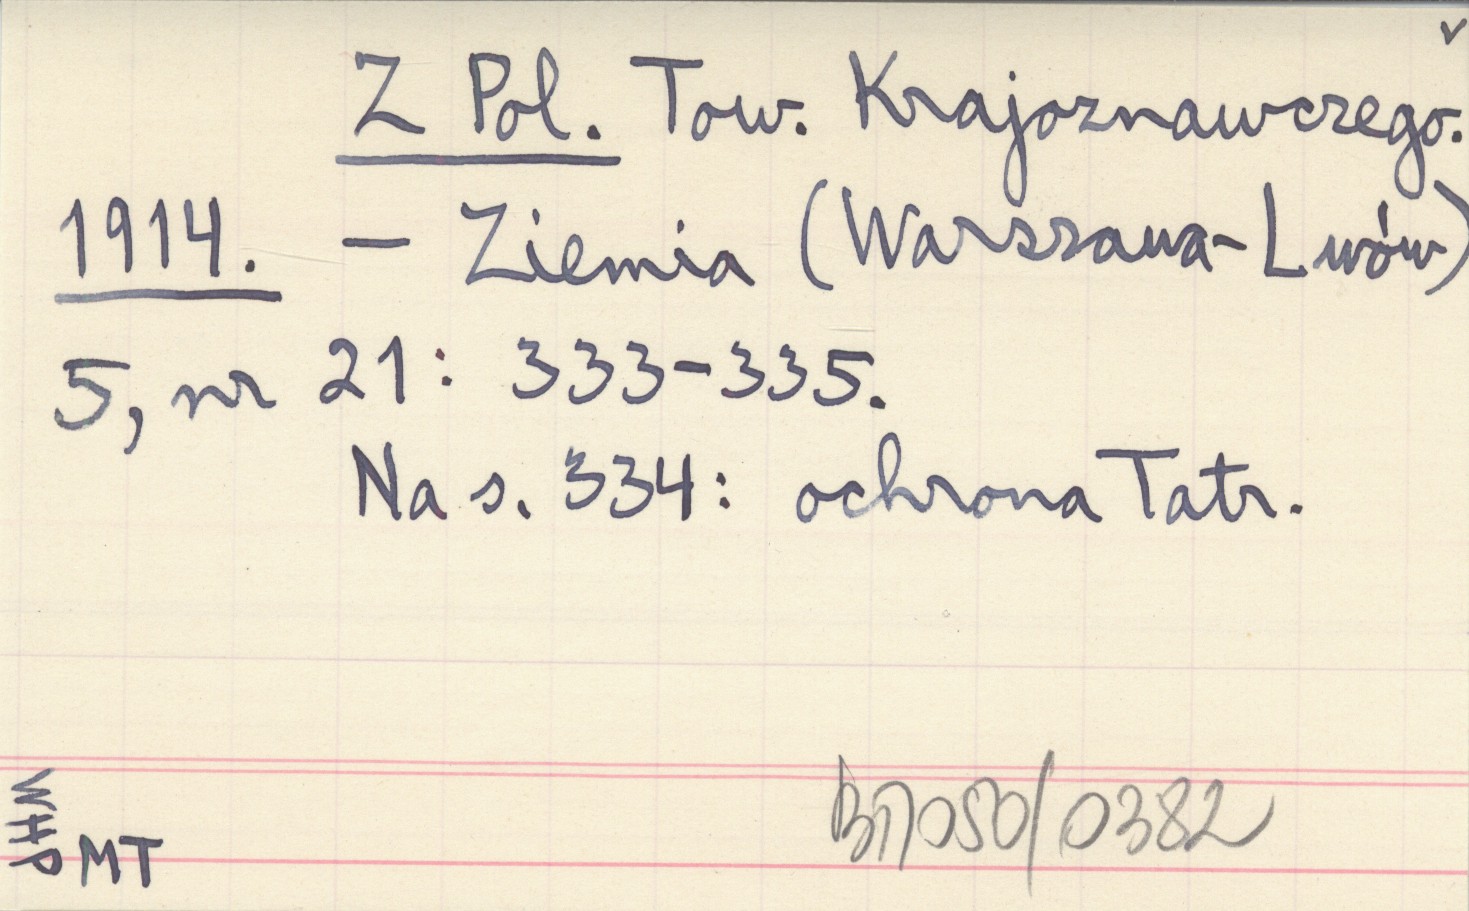 ✓
Z Pol. Tow. Krajoznawczego.
1914. — Ziemia (Warszawa-Lwów)
5, nr 21: 333-335.
Na s. 334: ochrona Tatr.
WHP
MT
050/0382